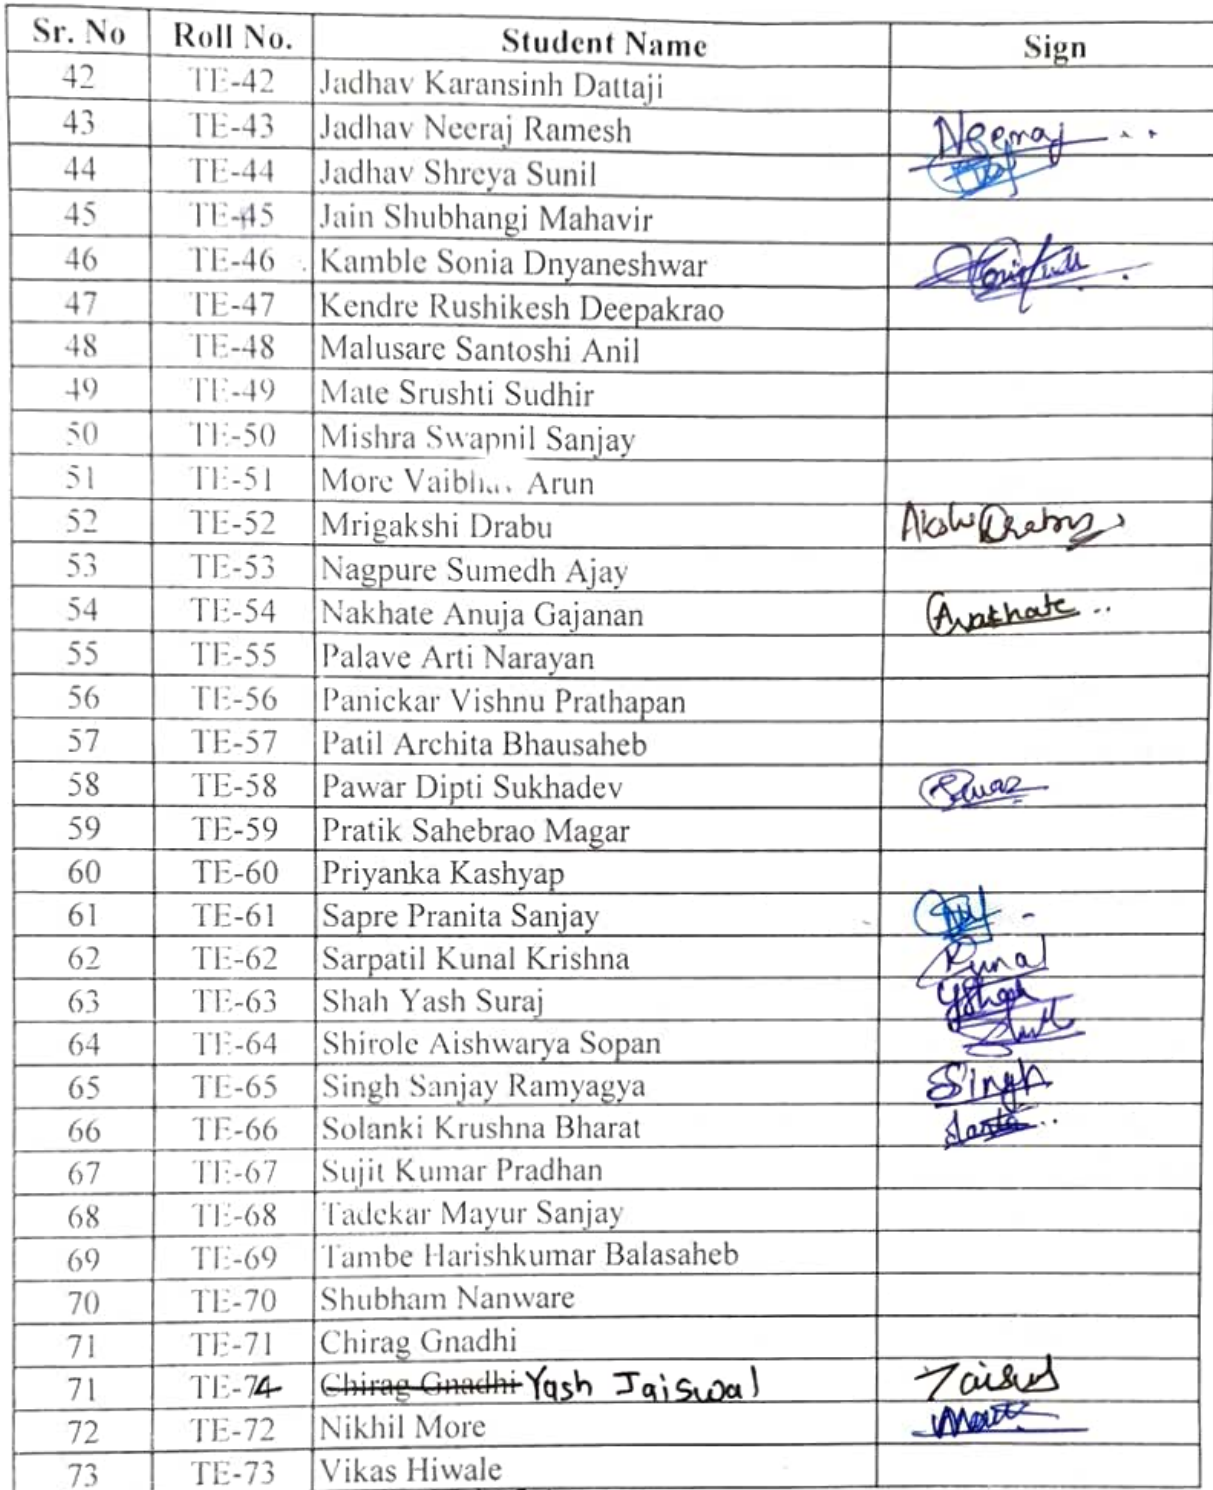 Sr. No Roll No. Student Name Sign
42 TE-42 Jadhav Karansinh Dattaji
43 TE-43 Jadhav Neeraj Ramesh Neeraj
44 TE-44 Jadhav Shreya Sunil
45 TE-45 Jain Shubhangi Mahavir
46 TE-46 Kamble Sonia Dnyaneshwar
47 TE-47 Kendre Rushikesh Deepakrao
48 TE-48 Malusare Santoshi Anil
49 TE-49 Mate Srushti Sudhir
50 TE-50 Mishra Swapnil Sanjay
51 TE-51 More Arun
52 TE-52 Mrigakshi Drabu
53 TE-53 Nagpure Sumedh Ajay
54 TE-54 Nakhate Anuja Gajanan
55 TE-55 Palave Arti Narayan
56 TE-56 Panickar Vishnu Prathapan
57 TE-57 Patil Archita Bhausaheb
58 TE-58 Pawar Dipti Sukhadev
59 TE-59 Pratik Sahebrao Magar
60 TE-60 Priyanka Kashyap
61 TE-61 Sapre Pranita Sanjay
62 TE-62 Sarpatil Kunal Krishna Kunal
63 TE-63 Shah Yash Suraj
64 TE-64 Shirole Aishwarya Sopan
65 TE-65 Singh Sanjay Ramyagya Singh
66 TE-66 Solanki Krushna Bharat
67 TE-67 Sujit Kumar Pradhan
68 TE-68 Tadekar Mayur Sanjay
69 TE-69 Tambe Harishkumar Balasaheb
70 TE-70 Shubham Nanware
71 TE-71 Chirag Gnadhi
71 TE-74 Chirag Gnadhi Yash Jaiswal
72 TE-72 Nikhil More
73 TE-73 Vikas Hiwale